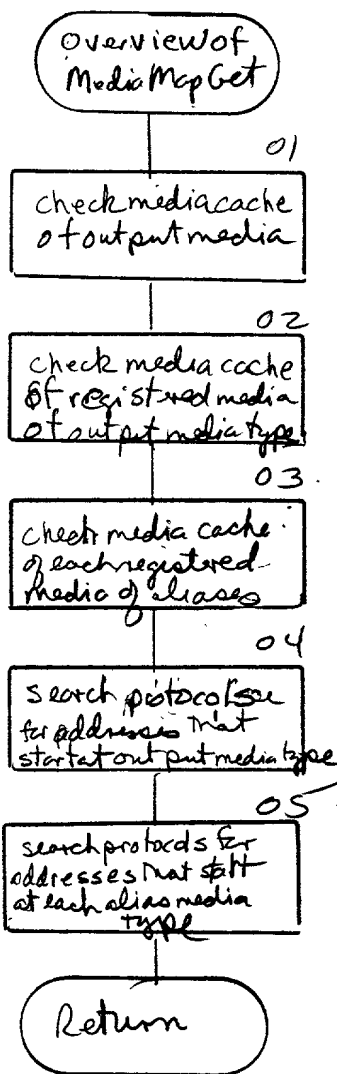 overview of
MediaMapGet
01
check media cache
of output media
02
check media cache
of registered media
of output media type
03
check media cache
of each registered
media of aliases
04
search protocols
for addresses that
start at output media type
05
search protocols for
addresses that start
at each alias media
type
Return